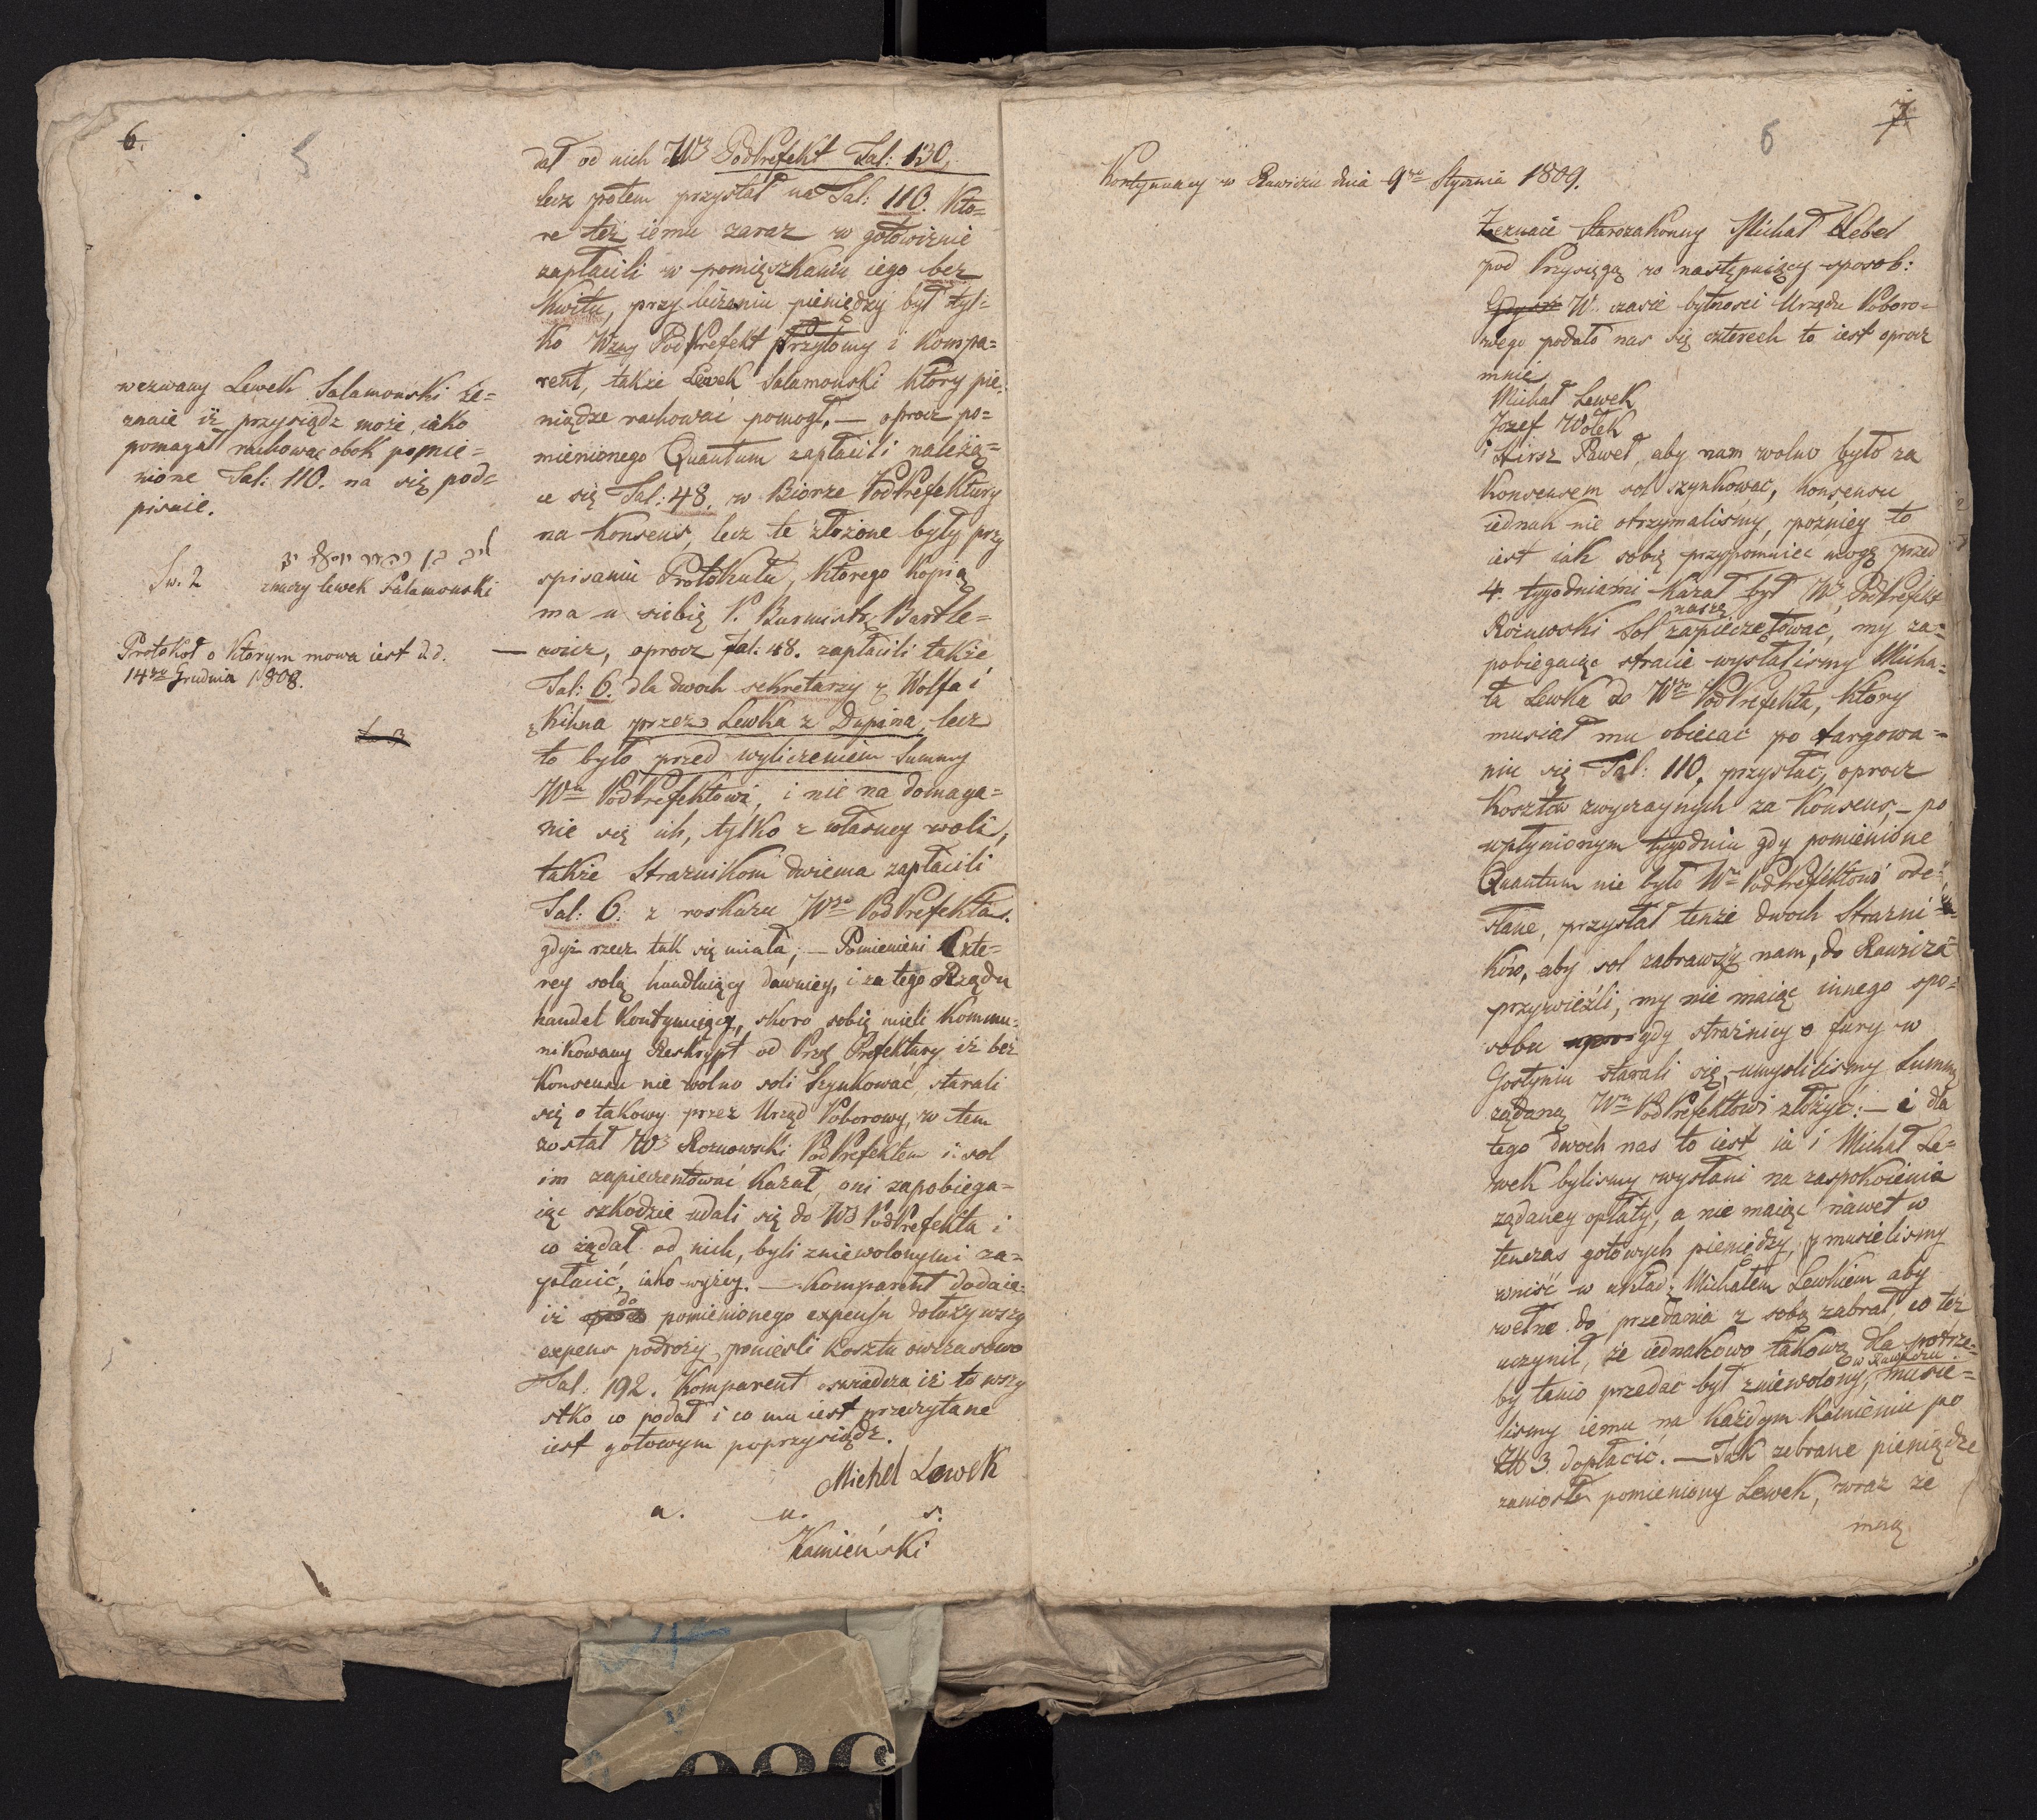 6.
5
dał od nich JW. PodPrefekt Tal: 130,
lecz potem przystał na Tal: 110. Kto=
re też iemu zaraz w gotowiznie
zapłacili w pomięszkaniu iego bez
Kwitu, przy liczeniu pieniędzy był tyl=
ko Wzny PodPrefekt Przytomy i kompa=
rent, także Lewek Salamonski który pie=
niądze rachować pomogł, — oprocz po=
mienionego Quantum zapłacili należą=
ce się Tal: 48. w Biorze PodPrefektury
na Konsens, lecz te złożone były przy
spisaniu Protokułu, Ktorego Kopią
ma u siebie P. Burmistrz Bartle=
— wicz, oprocz Tal: 48. zapłacili także
Tal: 6. dla dwoch sekretarzy z Wolfa i
Kihna przez Lewka z Dupina, lecz
to było przed wyliczeniem Summy
Wu PodPrefektowi, i nie na domaga=
nie się ich, tylko z własney woli,
także Strażnikom dwiema zapłacili
Tal: 6: z roskazu Wgo PodPrefekta.
gdyż rzecz tak się miała; — Pomienieni Czte=
rey solą handluiący dawniey, i za tego Rządu
handel Kontynuiący, skoro sobie mieli Kommu=
nikowany Reskrypt od Prześ Prefektury iż bez
Konsensu nie wolno soli Szynkować, starali
się o takowy przez Urząd Poborowy, w tem
został W. Roznowski PodPrefektem i sol
im zapieczentować Kazał, oni zapobiega=
iąc szkodzie udali się do W PodPrefekta i
co żądał od nich, byli zniewolonymi za=
płacić, iako wyżey. — Komparent dodaie
iż do pomienionego expensu dołożywszy
expens podroży ponieśli Kosztu owczasowo
Tal: 192. Komparent oswiadcza iż to wszy
stko co podał i co mu iest przeczytane
iest gotowym poprzysiądz.
Michel Lewek
a. u. s.
Kamieński
wezwany Lewek Salamonski ze=
znaie iż przysiądz może, iako
pomagał rachować obok pomie=
nione Tal: 110. na się pod=
pisuie.
Sw. 2 znaczy Lewek Salamonski
Protokoł o Ktorym mowa iest d.d.
14go Grudnia 1808.
7
6
Kontynuacy w Rawiczu dnia 9go Stycznia 1809.
Zeznaie Starozakonny Michał Lebel
pod Przysięgą w następuiący sposob:
W czasie bytności Urzędu Poboro=
wego podało nas się czterech to iest oprocz
mnie
Michał Lewek
Jozef Wołek
i Hirsz Paweł, aby nam wolno było za
Konsensem sol szynkować, konsensu
iednak nie otrzymalismy, poźniey to
iest iak sobie przypomnieć mogę przed
4. tygodniami Kazał był W. PodPrefekt
Rożnowski Sol naszę zapieczętować, my za=
pobiegaiąc stracie wysłaliśmy Micha=
ła Lewka do Wgo PodPrefekta, Ktory
musiał mu obiecać po targowa=
niu się Tal: 110, przysłać, oprocz
Kosztów zwyczaynych za Konsens, — po
upłynionym tygodniu gdy pomienione
Quantum nie było Wu PodPrefektowi ode=
słane, przysłał tenże dwoch Strazni=
ków, aby sol zabrawszy nam, do Rawicza
przywieźli, my nie maiąc innego spo=
sobu gdy strażnicy o fury w
Gostyniu starali się, umyslilismy Summę
rządaną Wu PodPrefektowi złożyć: — i dla
tego dwoch nas to iest ia i Michał Le=
wek bylismy wysłani na zaspokoienia
ządaney opłaty, a nie maiąc nawet w
tenczas gotowych pieniędzy, musielismy
wniść w układ z Michałem Lewkiem aby
wełne do przedania z sobą zabrał, co też
uczynił, że iednakowo takową dla potrze=
by tanio przedać był zniewolony w Rawiczu, musie=
lismy iemu na każdym kamieniu po
Zł 3. dopłacić. — Tak zebrane pieniądze
zaniosł pomieniony Lewek, wraz ze
mną